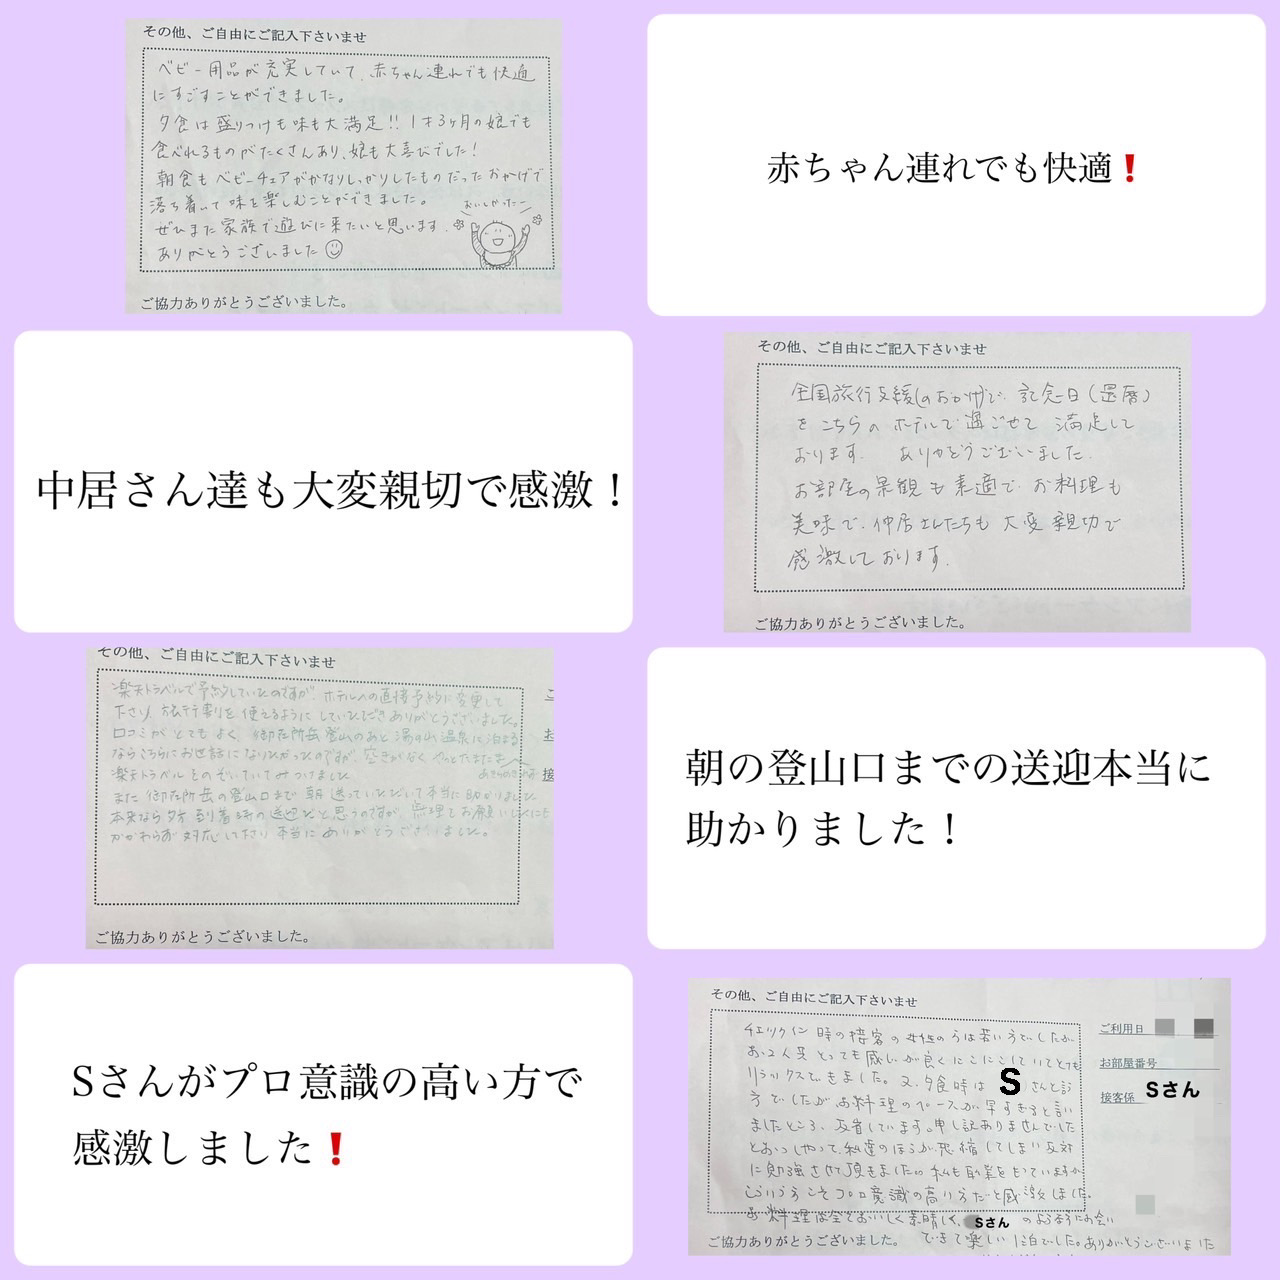 その他、ご自由にご記入下さいませ
ベビー用品が充実していて、赤ちゃん連れでも快適
にすごすことができました。
夕食は盛りつけも味も大満足!! 1才3ヶ月の娘でも
食べれるものがたくさんあり、娘も大喜びでした!
朝食もベビーチェアがかなりしっかりしたものだったおかげで
落ち着いて味を楽しむことができました。
おいしかったー
ぜひまた家族で遊びに来たいと思います。
ありがとうございました
ご協力ありがとうございました。
赤ちゃん連れでも快適❗
中居さん達も大変親切で感激！
その他、ご自由にご記入下さいませ
全国旅行支援(のおかげ)で、記念日(還暦)
をこちらのホテルで過ごせて満足して
おります。 ありがとうございました。
お部屋の景観も素適で、お料理も
美味で、仲居さんたちも大変親切で
感激しております。
ご協力ありがとうございました。
その他、ご自由にご記入下さいませ
楽天トラベルで予約していたのですが、ホテルへの直接予約に変更して
下さり、旅行割を使えるようにしていただきありがとうございました。
口コミがとてもよく、御在所岳登山のあと湯の山温泉に泊まる
ならこちらにお世話になりたかったのですが、空きがなくやっとたまたま
楽天トラベルをのぞいていてみつけました
また御在所岳の登山口まで朝送っていただいて本当に助かりました。
本来なら夕方到着時の送迎だと思うのですが、無理てお願いしたにも
かかわらず対応して下さり本当にありがとうございました。
ご協力ありがとうございました。
朝の登山口までの送迎本当に
助かりました！
Sさんがプロ意識の高い方で
感激しました❗
その他、ご自由にご記入下さいませ
チェックイン時の接客の女性の方は若い方でしたが
お2人共とっても感じが良くにこにこしていてとても
リラックスできました。又、夕食時は Sさんと言う
方でしたがお料理のペースが早すぎると言い
ましたところ、反省しています。申し訳ありませんでした
とおっしゃって、私達のほうが恐縮してしまい反対
に勉強させて頂きました。私も職業をもっていますが
こういう方こそプロ意識の高い方だと感激しました。
お料理は全ておいしく素晴しく、Sさん のような方にお会い
できて楽しい1泊でした。ありがとうございました
ご協力ありがとうございました。
ご利用日
お部屋番号
接客係 Sさん